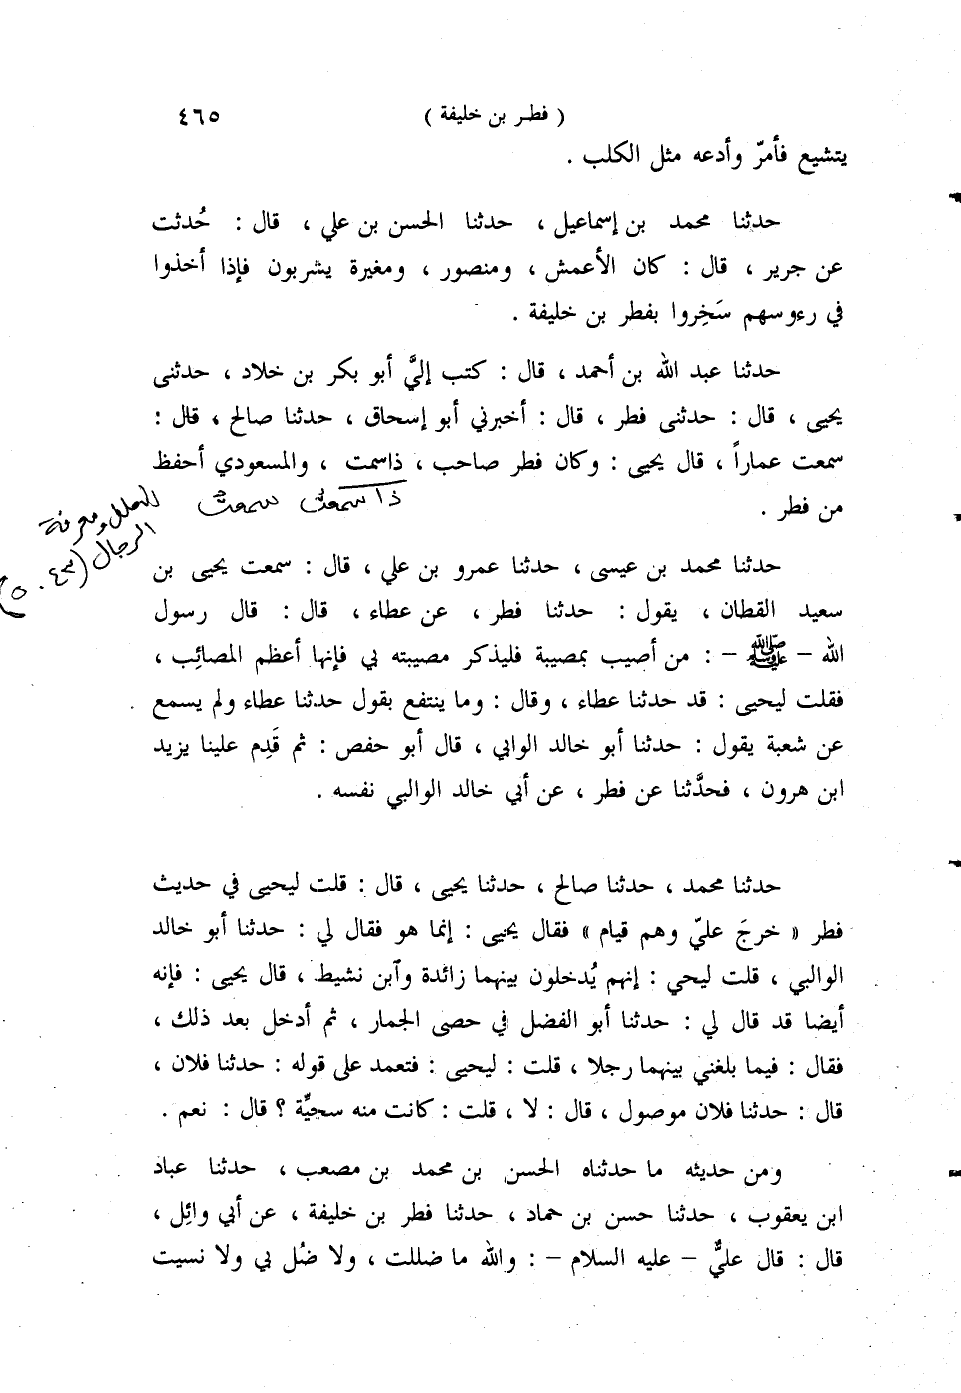 ( فطر بن خليفة ) ٤٦٥
يتشيع فأمرّ وأدعه مثل الكلب .
حدثنا محمد بن إسماعيل ، حدثنا الحسن بن علي ، قال : حُدثت
عن جرير ، قال : كان الأعمش ، ومنصور ، ومغيرة يشربون فإذا أخذوا
في رءوسهم سَخِروا بفطر بن خليفة .
حدثنا عبد الله بن أحمد ، قال : كتب إليَّ أبو بكر بن خلاد ، حدثنى
يحيى ، قال : حدثنى فطر ، قال : أخبرني أبو إسحاق ، حدثنا صالح ، قال :
سمعت عماراً ، قال يحيى : وكان فطر صاحب ، ذاسمت ، والمسعودي أحفظ
ذا سمعت سمعت
من فطر .
للعلل ومعرفة
الرجال (٥٠٤٣)
حدثنا محمد بن عيسى ، حدثنا عمرو بن علي ، قال : سمعت يحيى بن
سعيد القطان ، يقول : حدثنا فطر ، عن عطاء ، قال : قال رسول
الله – ﷺ – : من أصيب بمصيبة فليذكر مصيبته بي فإنها أعظم المصائِب ،
فقلت ليحيى : قد حدثنا عطاء ، وقال : وما ينتفع بقول حدثنا عطاء ولم يسمع .
عن شعبة يقول : حدثنا أبو خالد الوابي ، قال أبو حفص : ثم قَدِم علينا يزيد
ابن هرون ، فحدَّثنا عن فطر ، عن أبي خالد الوالبي نفسه .
حدثنا محمد ، حدثنا صالح ، حدثنا يحيى ، قال : قلت ليحيى في حديث
فطر « خرجَ عليّ وهم قيام » فقال يحيى : إنما هو فقال لي : حدثنا أبو خالد
الوالبي ، قلت ليحي : إنهم يُدخلون بينهما زائدة وآبن نشيط ، قال يحيى : فإنه
أيضا قد قال لي : حدثنا أبو الفضل في حصى الجمار ، ثم أدخل بعد ذلك ،
فقال : فيما بلغني بينهما رجلا ، قلت : ليحيى : فتعمد على قوله : حدثنا فلان ،
قال : حدثنا فلان موصول ، قال : لا ، قلت : كانت منه سجيَّة ؟ قال : نعم .
ومن حديثه ما حدثناه الحسن بن محمد بن مصعب ، حدثنا عباد
ابن يعقوب ، حدثنا حسن بن حماد ، حدثنا فطر بن خليفة ، عن أبي وائِل ،
قال : قال عليٌّ – عليه السلام – : والله ما ضللت ، ولا ضُل بي ولا نسيت